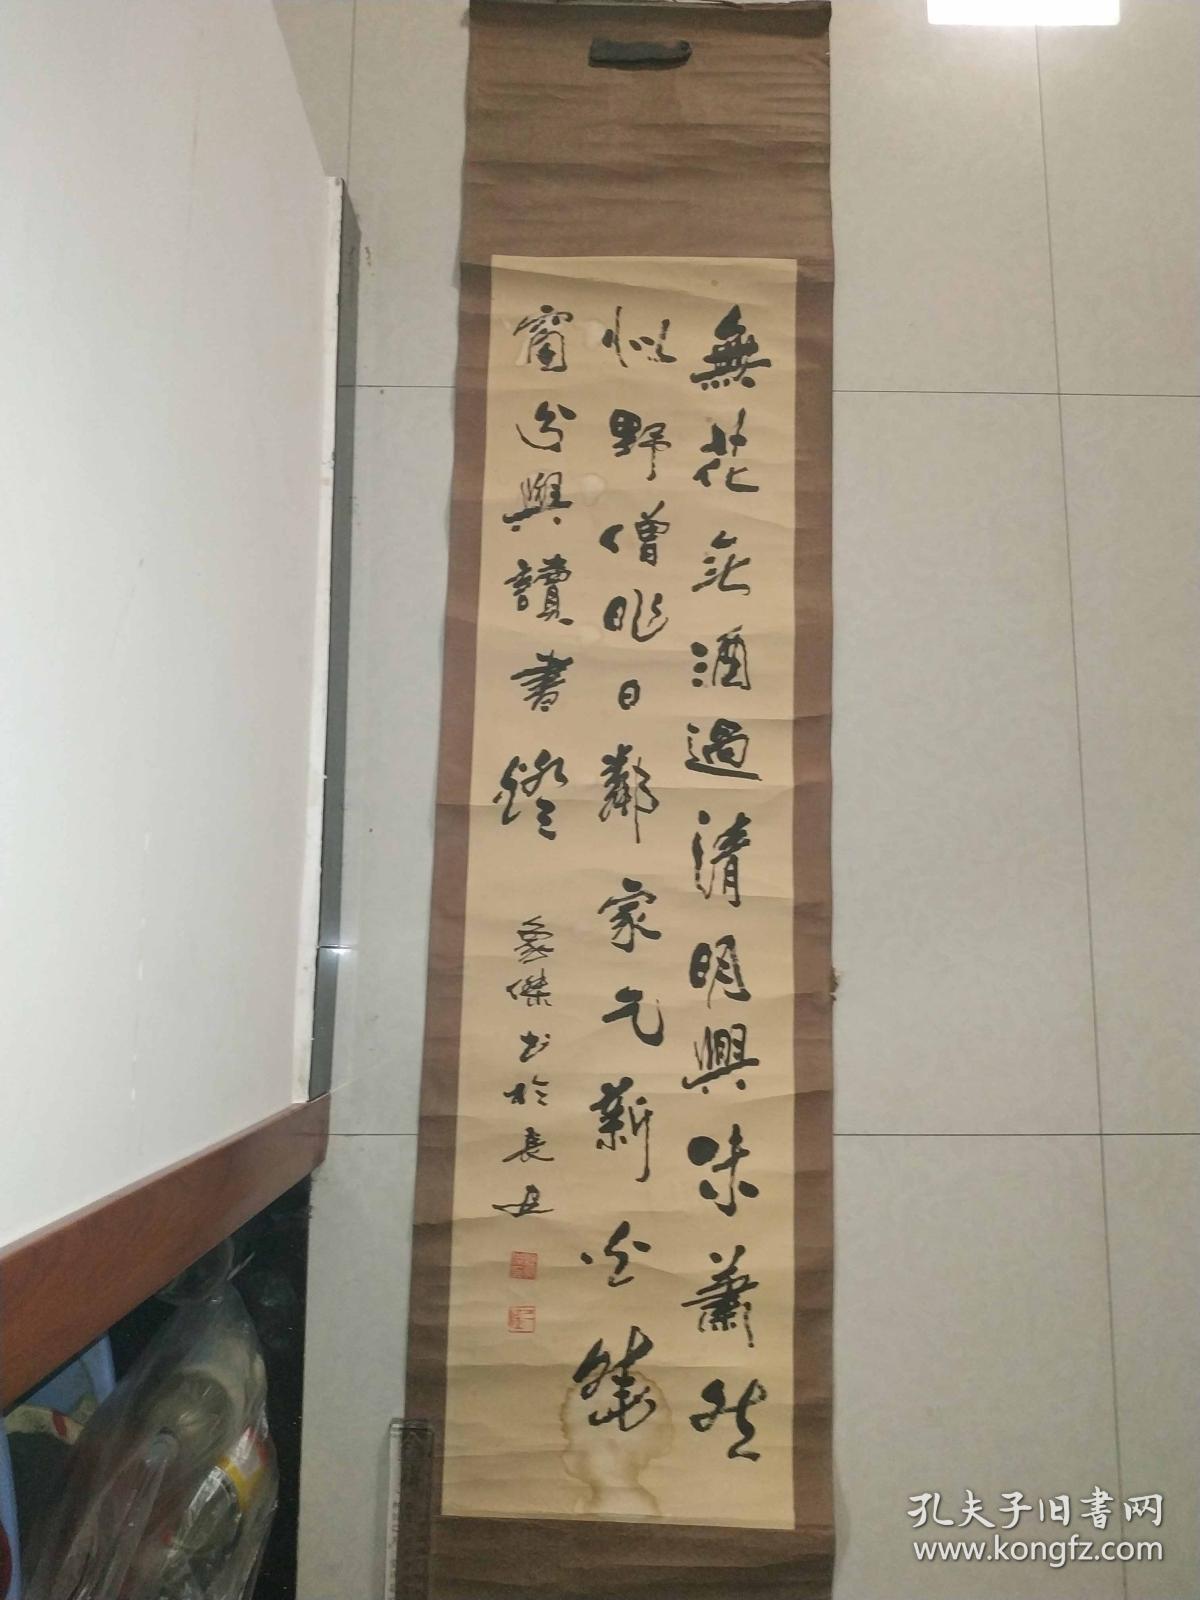 無花無酒過清明興味蕭然
似野僧昨日鄰家乞新火曉
窗分與讀書燈
傑书於長安
孔夫子旧书网
www.kongfz.com